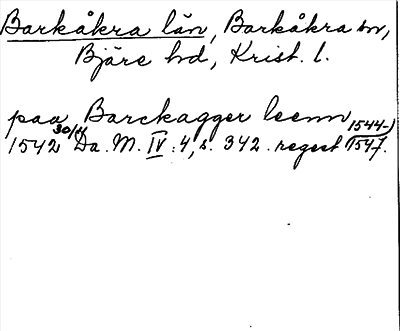 Barkåkra län, Barkåkra sn,
Bjäre hd, Krist. l.
paa Barckagger leenn
1542 30/4 Da. M. IV: 4, s. 342. regest 1544-1547.